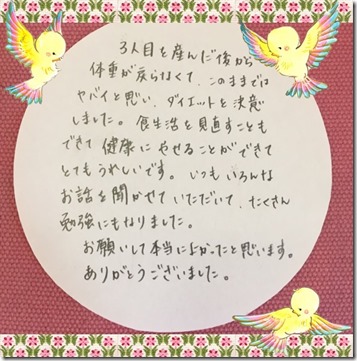 3人目を産んだ後から
体重が戻らなくて、このままでは
ヤバイと思い、ダイエットを決意
しました。食生活を見直すことも
できて健康にやせることができて
とてもうれしいです。いつもいろんな
お話を聞かせていただいて、たくさん
勉強にもなりました。
お願いして本当によかったと思います。
ありがとうございました。